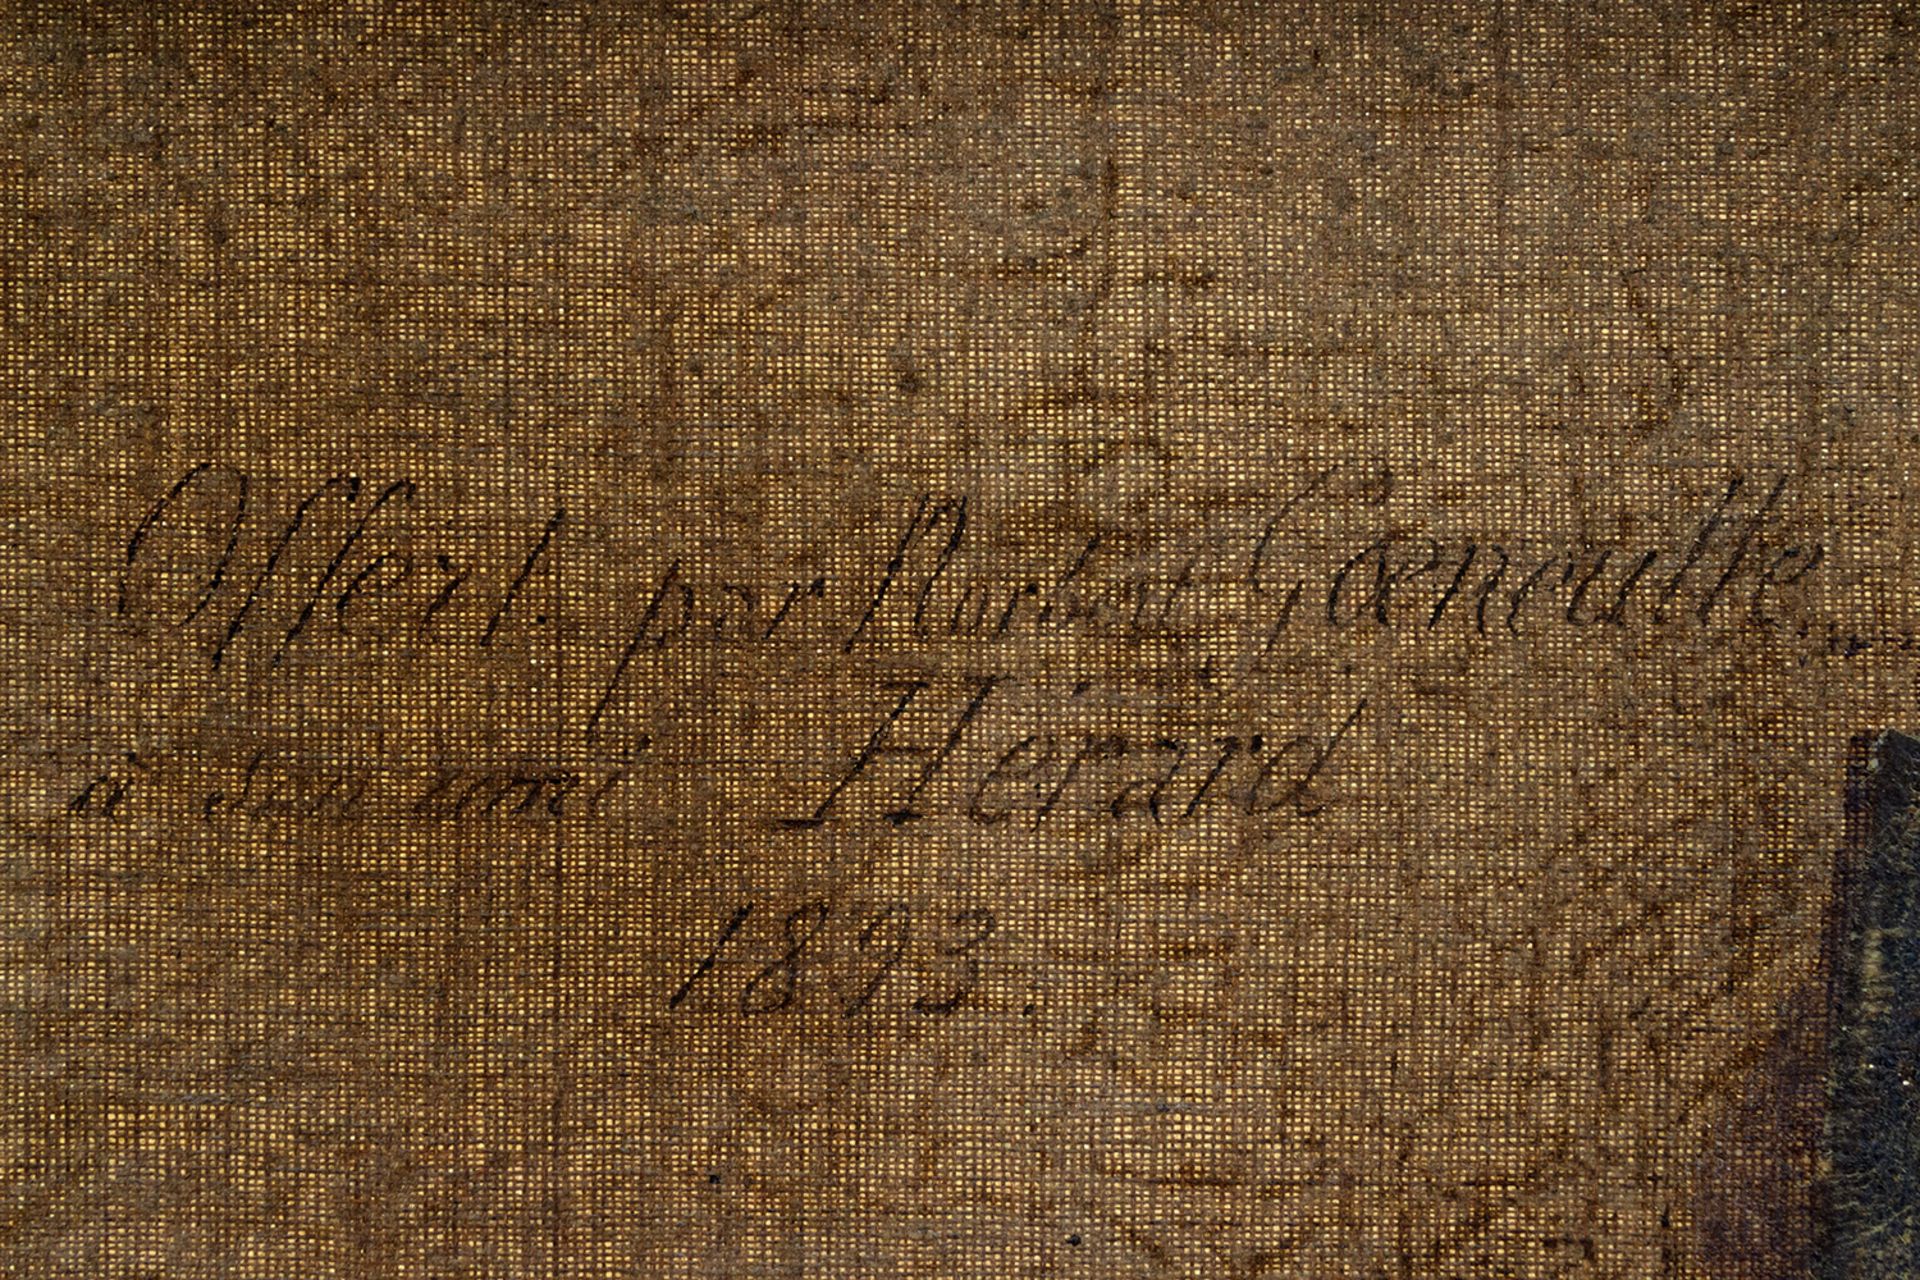 Offert. par Norbert Gœneutte
à son ami Hérard
1893.